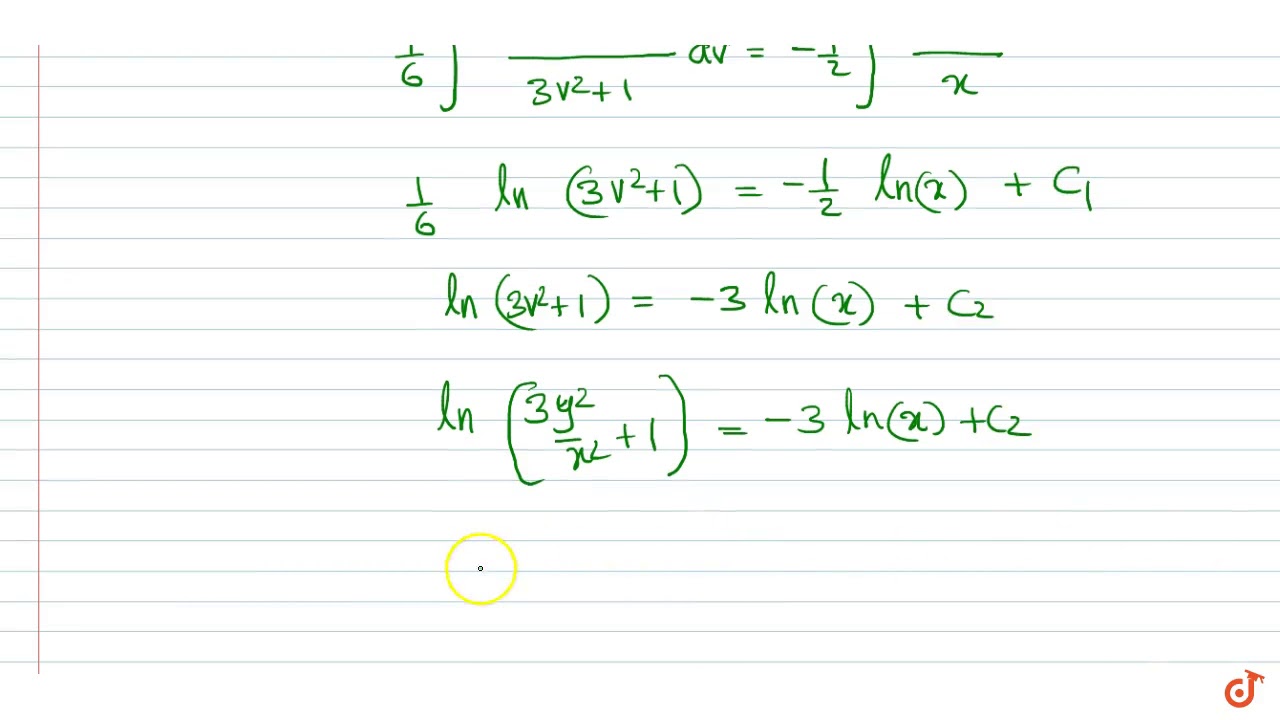 1/6 ∫ ─── dv = -1/2 ∫ ───
3v²+1 x
1/6 ln (3v²+1) = -1/2 ln(x) + C₁
ln (3v²+1) = -3 ln (x) + C₂
ln (3y²/x² + 1) = -3 ln(x) + C₂